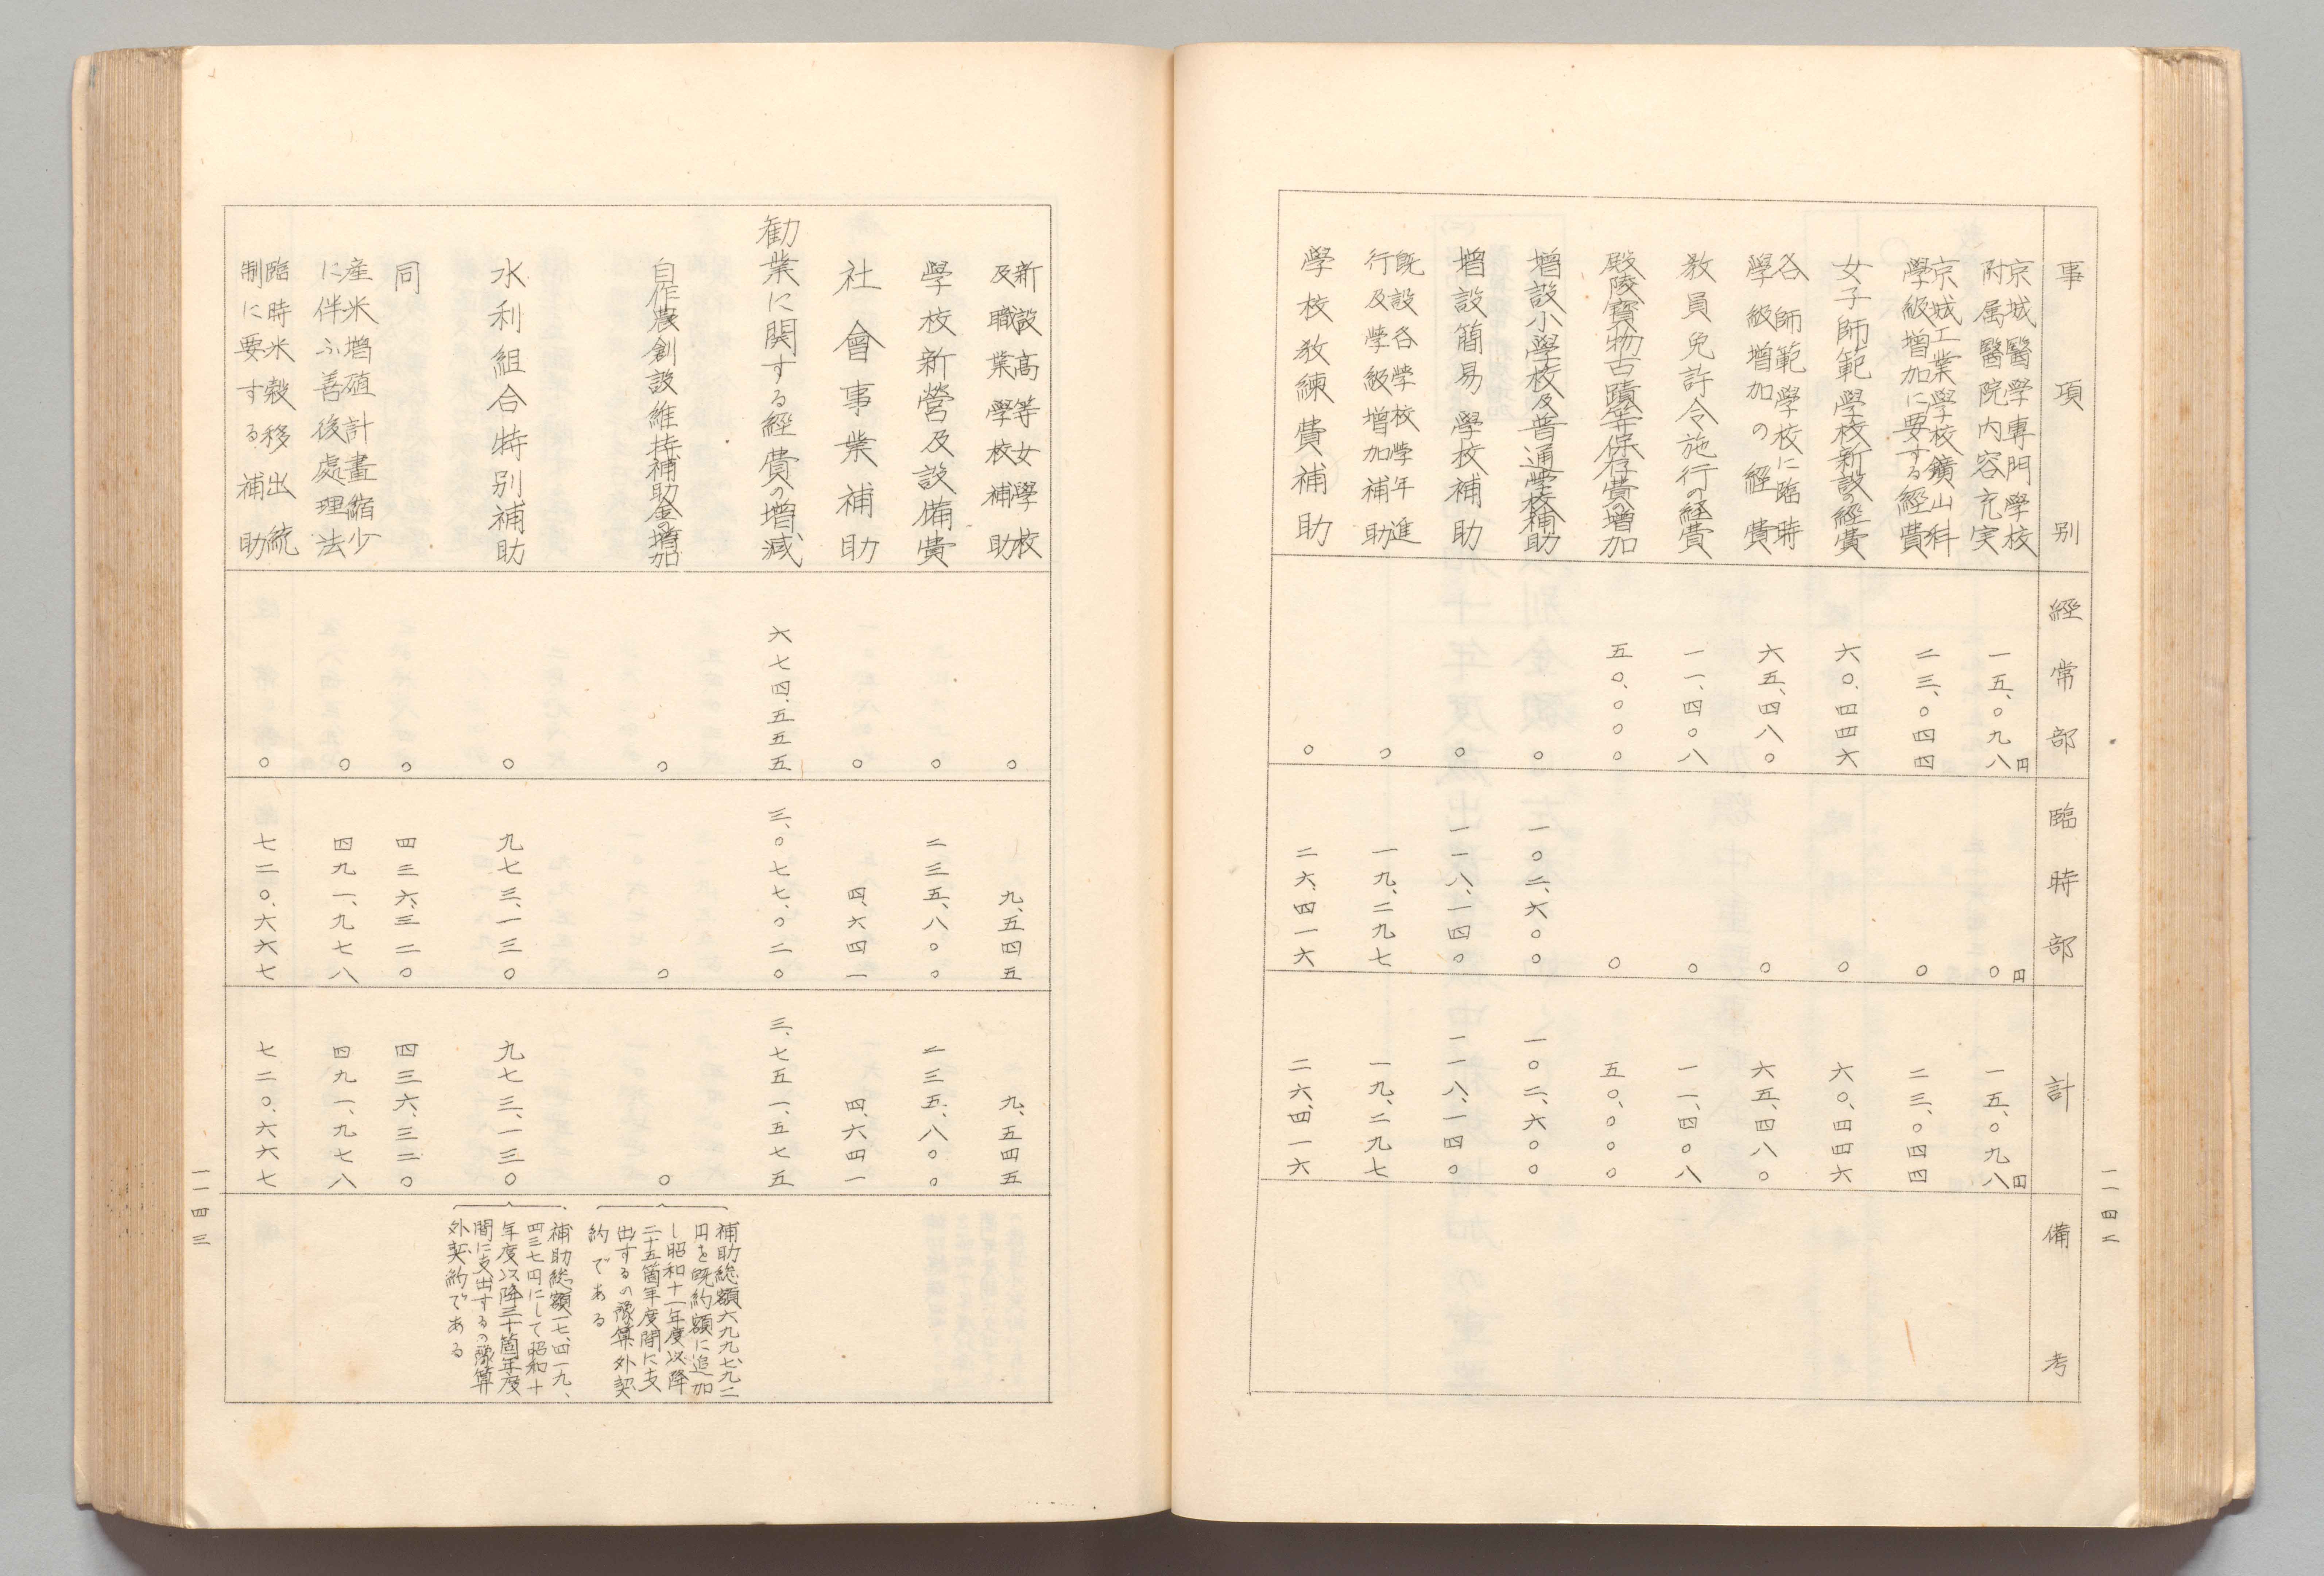 事項別 經常部 臨時部 計 備考
京城醫學專門學校
附属醫院内容充実 一五、〇九八円 〇円 一五、〇九八円
京城工業學校鑛山科
學級増加に要する經費 二三、〇四四 〇 二三、〇四四
女子師範學校新設の經費 六〇、四四六 〇 六〇、四四六
各師範學校に臨時
學級増加の經費 六五、四八〇 〇 六五、四八〇
教員免許令施行の経費 一一、四〇八 〇 一一、四〇八
殿陵寶物古蹟等保存費の増加 五〇、〇〇〇 〇 五〇、〇〇〇
増設小學校及普通學校補助 〇 一〇二、六〇〇 一〇二、六〇〇
増設簡易學校補助 〇 一一八、一四〇 一一八、一四〇
既設各學校學年進
行及學級増加補助 〇 一九、二九七 一九、二九七
學校教練費補助 〇 二六、四一六 二六、四一六
一一四二
新設高等女學校
及職業學校補助 〇 九、五四五 九、五四五
學校新營及設備費 〇 二三五、八〇〇 二三五、八〇〇
社會事業補助 〇 四、六四一 四、六四一
勧業に関する經費の増減 六七四、五五五 三、〇七七、〇二〇 三、七五一、五七五
自作農創設維持補助金の増加 〇 〇 〇
補助総額六九九七、九二
円を既約額に追加
し昭和十一年度以降
二十五箇年度間に支
出するの豫算外契
約である
水利組合特別補助 〇 九七三、一三〇 九七三、一三〇
補助総額一七、四一九、
四三七円にして昭和十
年度以降三十箇年度
間に支出するの豫算
外契約である
同 〇 四三六、三二〇 四三六、三二〇
産米増殖計畫縮少
に伴ふ善後處理法 〇 四九一、九七八 四九一、九七八
臨時米穀移出統
制に要する補助 〇 七二〇、六六七 七二〇、六六七
一一四三